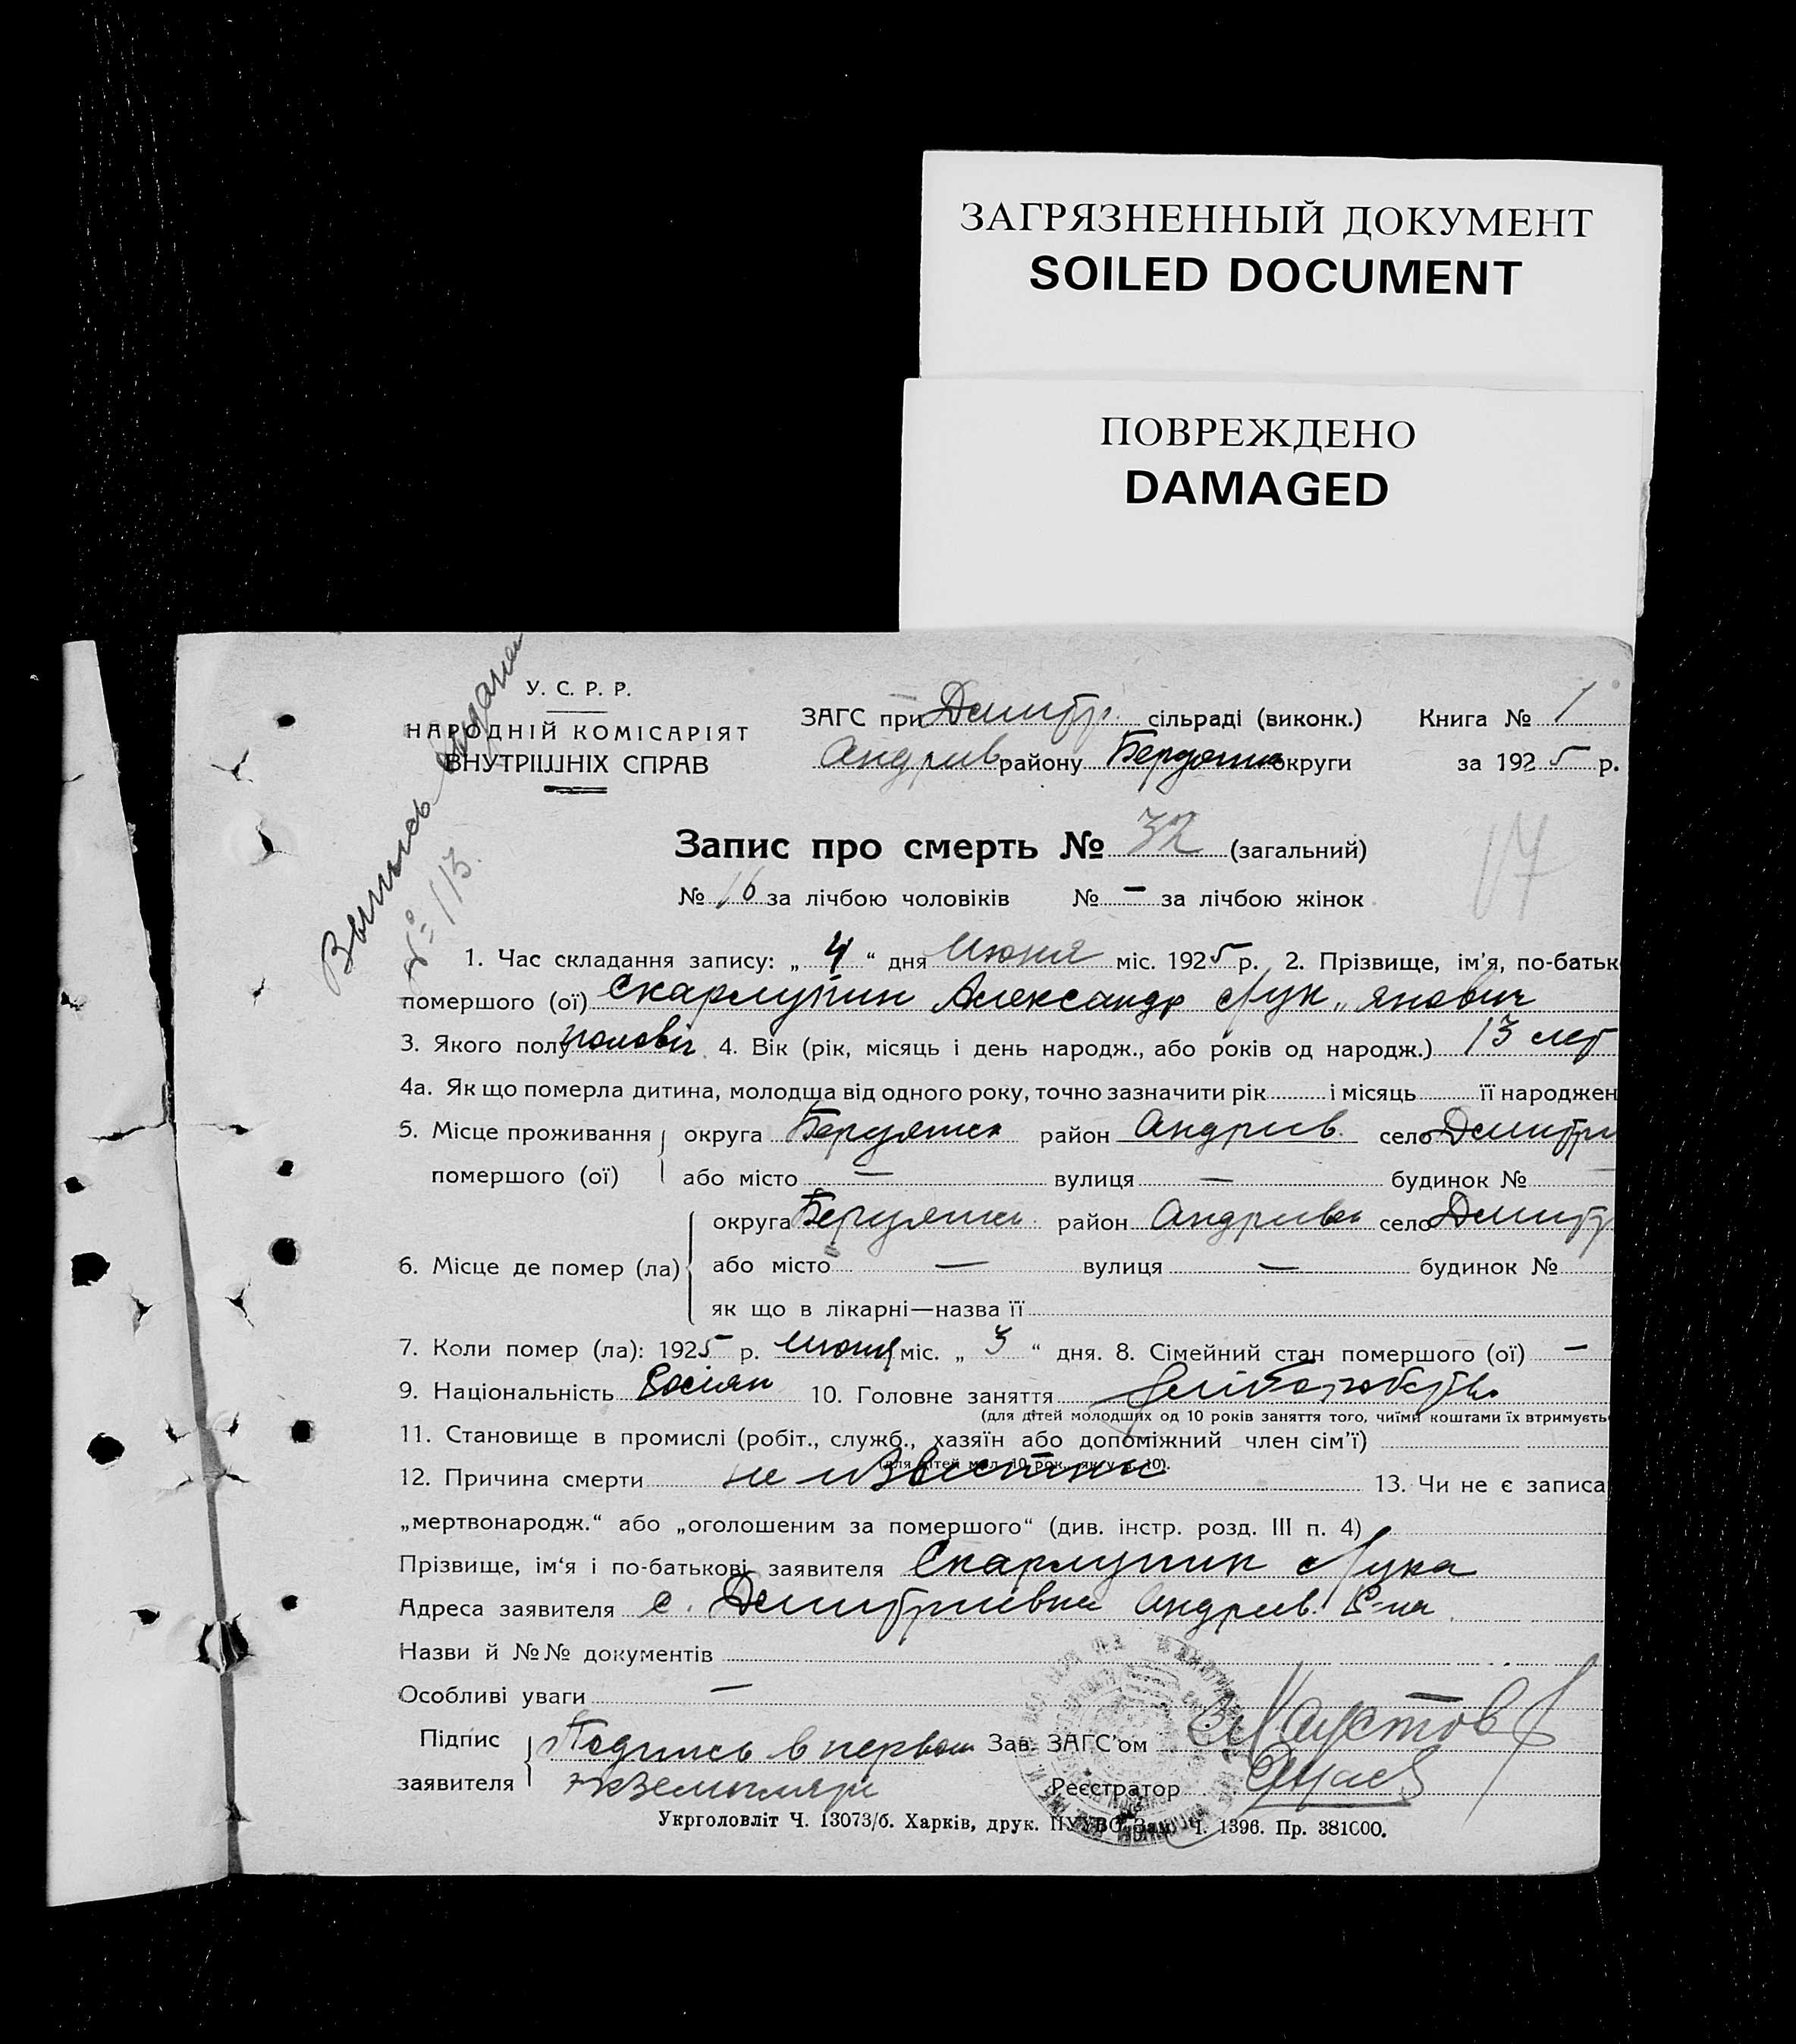 ЗАГРЯЗНЕННЫЙ ДОКУМЕНТ
SOILED DOCUMENT
ПОВРЕЖДЕНО
DAMAGED
Выпись выдана
№ 113.
У. С. Р. Р.
НАРОДНІЙ КОМІСАРІЯТ
ВНУТРІШНІХ СПРАВ
ЗАГС при Дмитр. сільраді (виконк.) Книга № 1
Андрив району Бердянск округи за 1925 р.
Запис про смерть № 32 (загальний)
17
№ 16 за лічбою чоловіків № — за лічбою жінок
1. Час складання запису: „ 4 “ дня Июня міс. 1925 р. 2. Прізвище, ім'я, по-батьк
помершого (ої) Скарлупин Александр Лук„янович
3. Якого полу чоловіч. 4. Вік (рік, місяць і день народж., або років од народж.) 13 лет
4а. Як що померла дитина, молодша від одного року, точно зазначити рік і місяць її народжен
5. Місце проживання округа Бердянск район Андрив. село Дмитри
помершого (ої) або місто — вулиця — будинок № —
округа Бердянск район Андривск село Дмитр
6. Місце де помер (ла) або місто — вулиця — будинок №
як що в лікарні—назва її
7. Коли помер (ла): 1925 р. Июня міс. „ 3 “ дня. 8. Сімейний стан помершого (ої) —
9. Національність Росіян 10. Головне заняття
(для дітей молодших од 10 років заняття того, чиїми коштами їх втримуєть
11. Становище в промислі (робіт., служб., хазяїн або допоміжний член сім'ї)
(для дітей мол. 10 рок., як у п. 10).
12. Причина смерти не известна 13. Чи не є записа
„мертвонародж.“ або „оголошеним за помершого“ (див. інстр. розд. III п. 4)
Прізвище, ім'я і по-батькові заявителя Скарлупин Лука
Адреса заявителя с. Дмитриевка Андрив. Р-на
Назви й №№ документів
Особливі уваги —
Підпис Подпись в первом Зав. ЗАГС'ом
заявителя экземпляри Реєстратор
Укрголовліт Ч. 13073/б. Харків, друк. Зам. Ч. 1396. Пр. 381000.